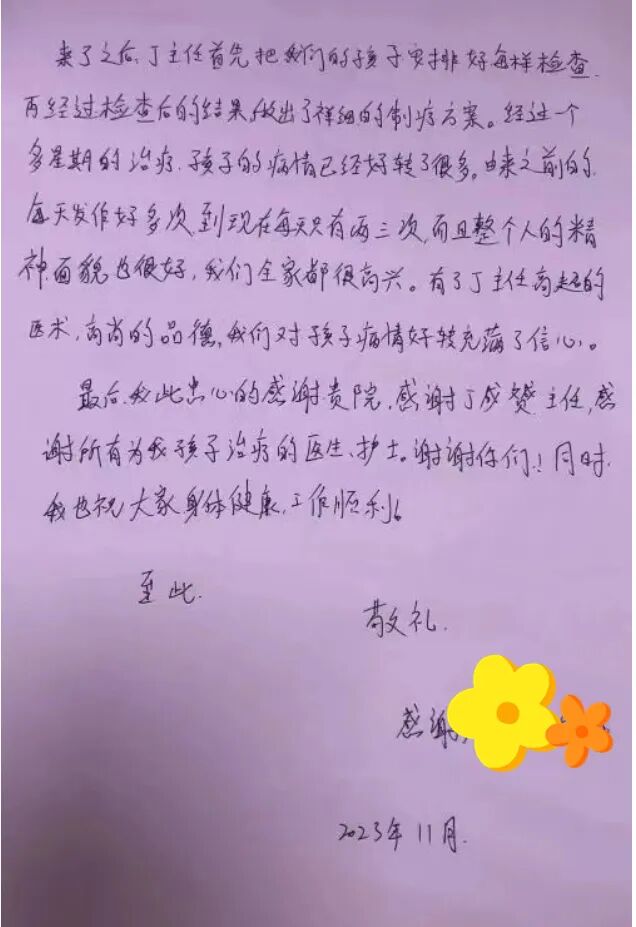 来了之后,丁主任首先把我们的孩子安排好每样检查.
再经过检查后的结果,做出了祥细的制疗方案。经过一个
多星期的治疗.孩子的病情已经好转了很多。由来之前的
每天发作好多次,到现在每天只有两三次,而且整个人的精
神面貌也很好,我们全家都很高兴。有了丁主任高超的
医术,高尚的品德,我们对孩子病情好转充满了信心。
最后,我此忠心的感谢贵院,感谢丁成赟主任,感
谢所有为我孩子治疗的医生、护士。谢谢你们!同时.
我也祝大家身体健康,工作顺利。
至此.
敬礼.
感谢
2023年11月.